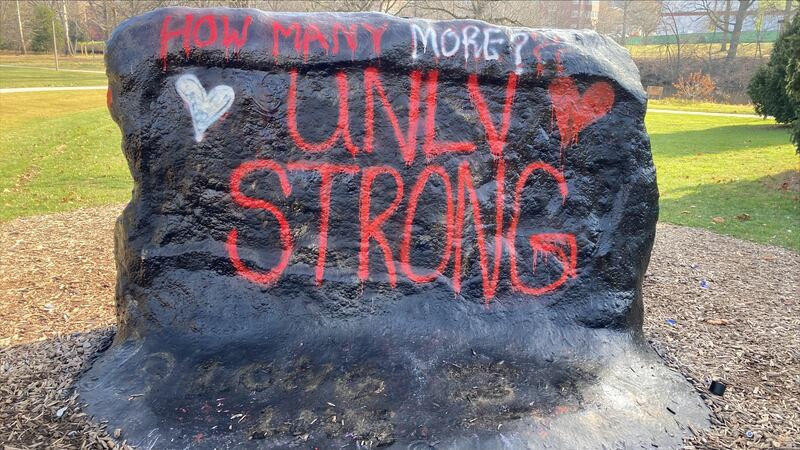 HOW MANY MORE?
UNLV
STRONG